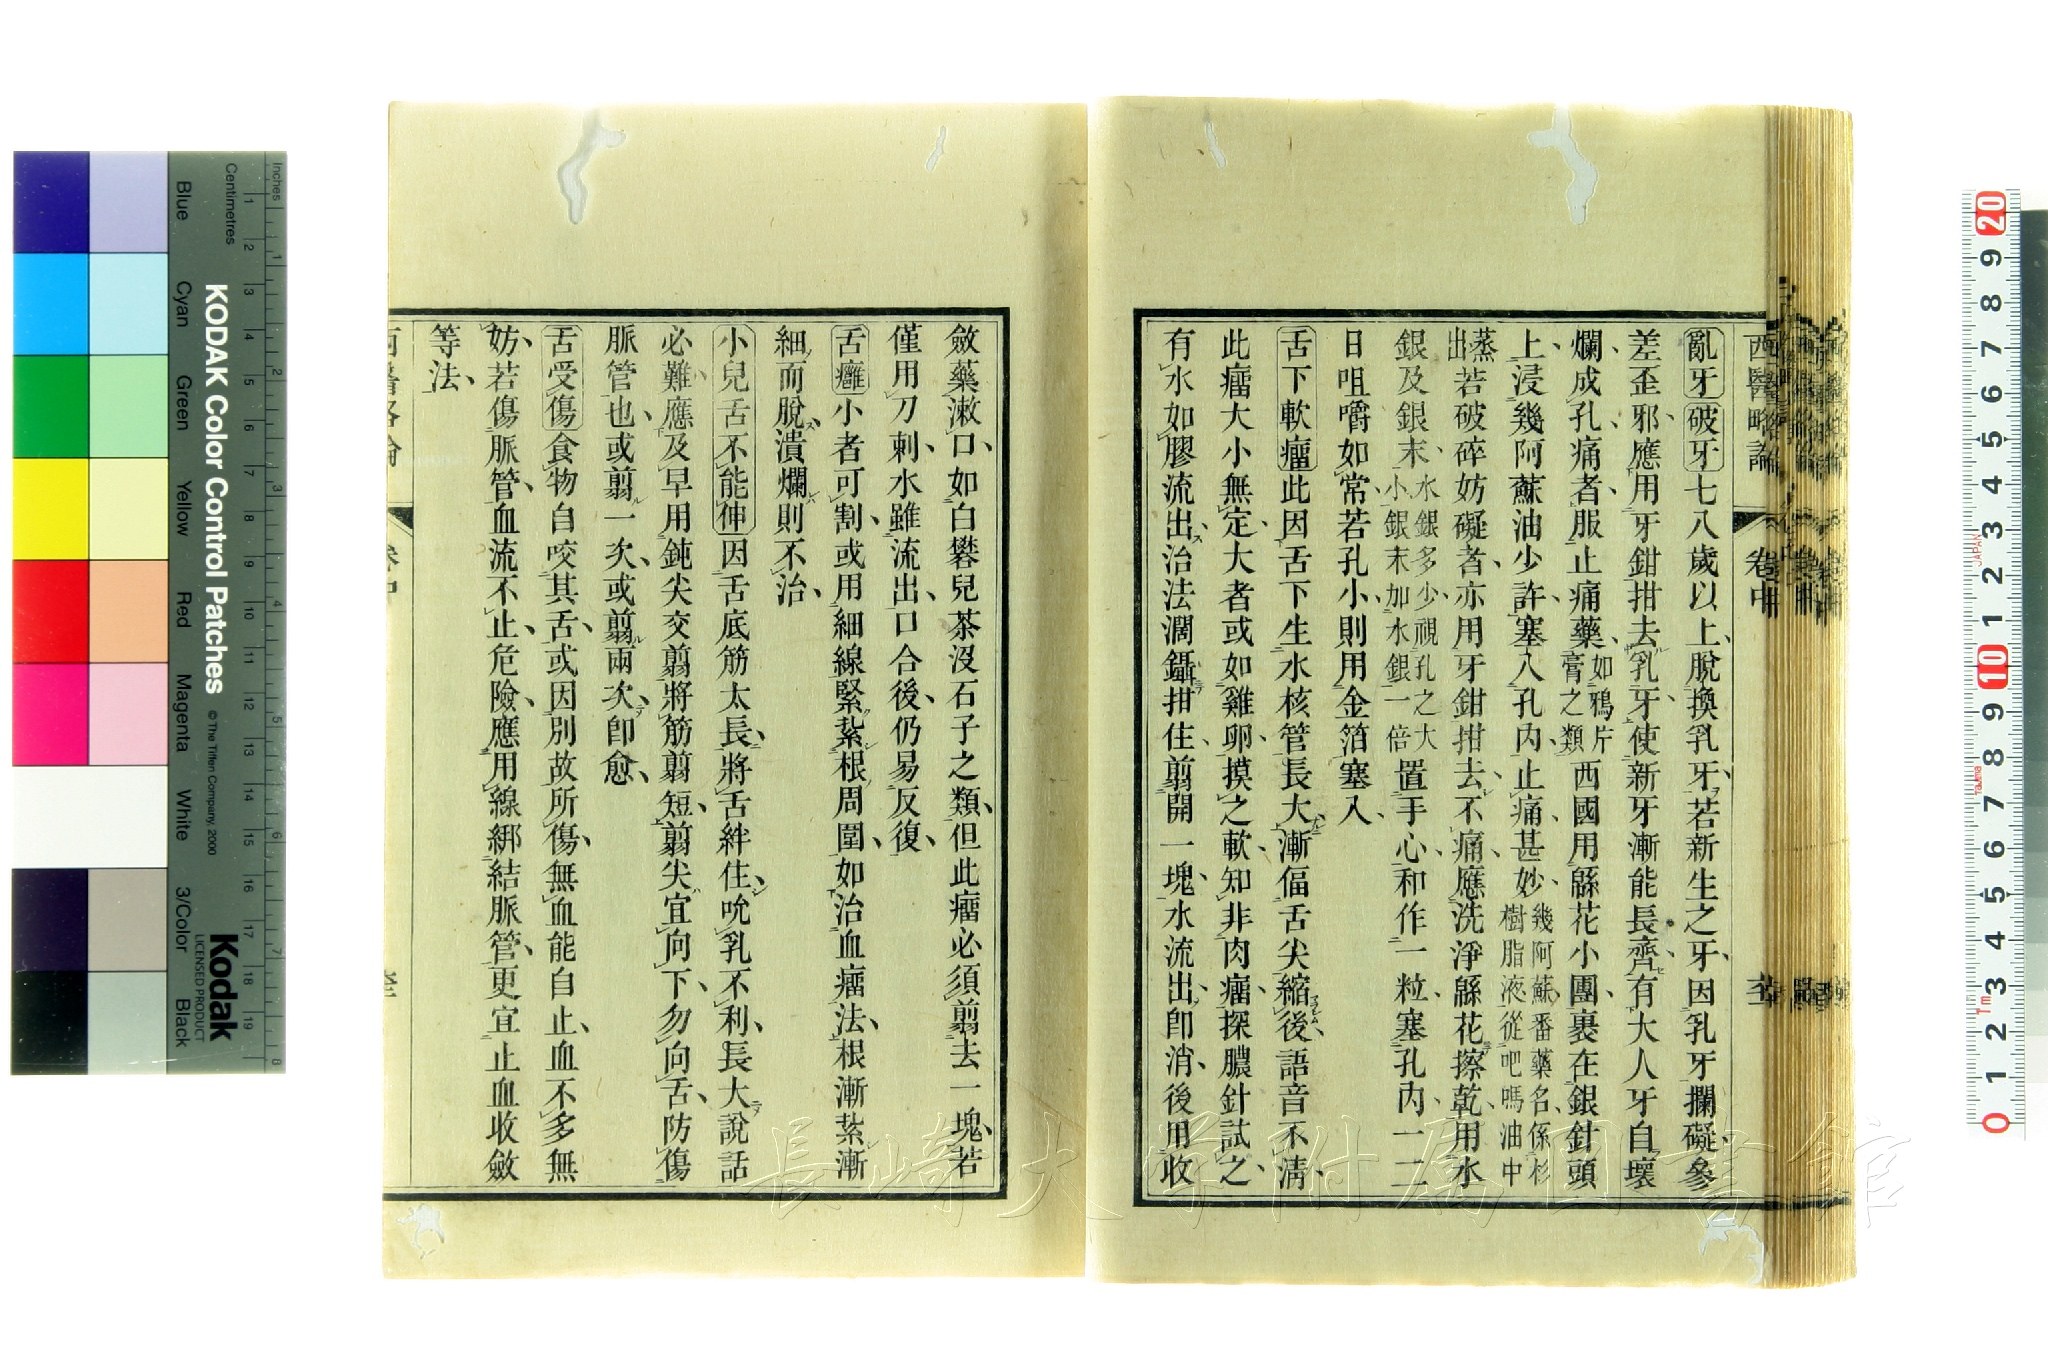 西醫略論 卷中
亂牙破牙七八歲以上脫換乳牙若新生之牙因乳牙攔礙參
差歪邪應用牙鉗拑去乳牙使新牙漸能長齊有大人牙自壞
爛成孔痛者服止痛藥如鴉片膏之類西國用緜花小團裹在銀針頭
上浸幾阿蘇油少許塞入孔內止痛甚妙幾阿蘇番藥名係杉樹脂液從吧嗎油中
蒸出若破碎妨礙者亦用牙鉗拑去不痛應洗淨緜花擦乾用水
銀及銀末水銀多少視孔之大小銀末加水銀一倍置手心和作一粒塞孔內一二
日咀嚼如常若孔小則用金箔塞入
舌下軟瘤此因舌下生水核管長大漸偪舌尖縮後語音不清
此瘤大小無定大者或如雞卵摸之軟知非肉瘤探膿針試之
有水如膠流出治法濶鑷拑住翦開一塊水流出卽消後用收
斂藥漱口如白礬兒茶沒石子之類但此瘤必須翦去一塊若
僅用刀刺水雖流出口合後仍易反復
舌癰小者可割或用細線緊紮根周圍如治血瘤法根漸紮漸
細而脫潰爛則不治
小兒舌不能伸因舌底筋太長將舌絆住吮乳不利長大說話
必難應及早用鈍尖交翦將筋翦短翦尖宜向下勿向舌防傷
脈管也或翦一次或翦兩次卽愈
舌受傷食物自咬其舌或因別故所傷無血能自止血不多無
妨若傷脈管血流不止危險應用線綁結脈管更宜止血收斂
等法
KODAK Color Control Patches
© The Tiffen Company, 2000
Kodak
LICENSED PRODUCT
Inches
Centimetres
Blue Cyan Green Yellow Red Magenta White 3/Color Black
長崎大学附属図書館